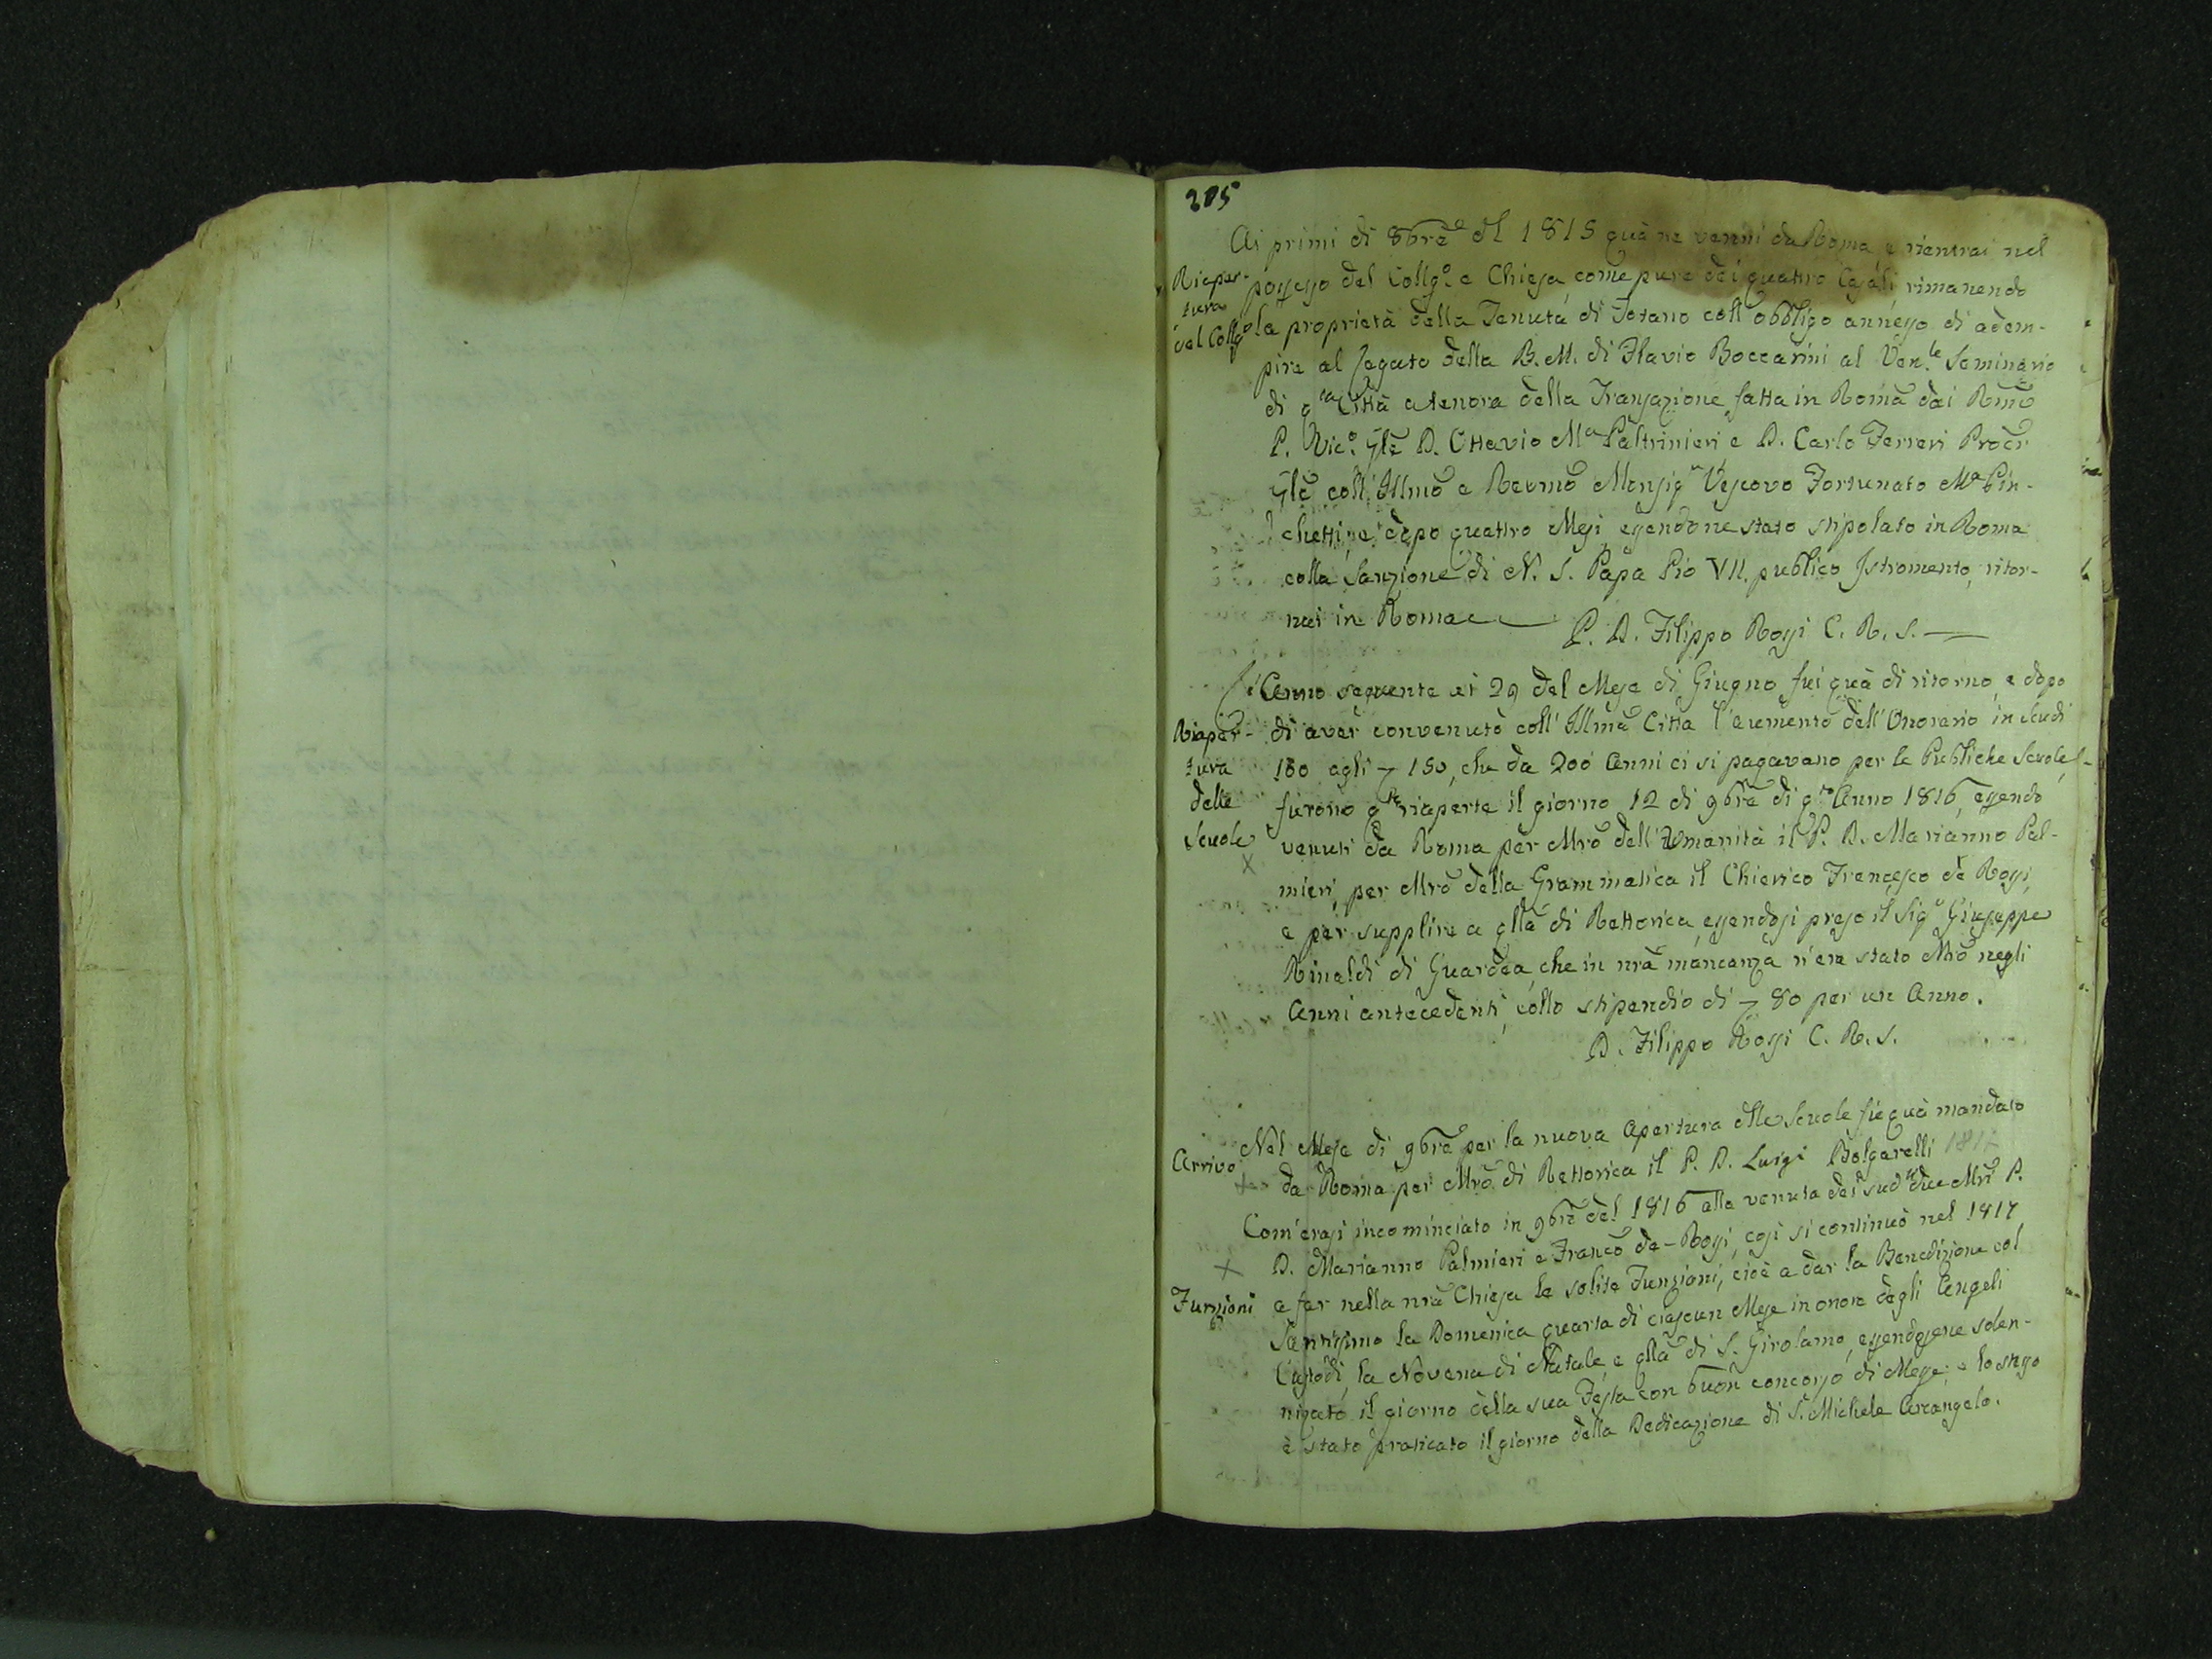 205
Ai primi di 8bre dl 1815 quà ne venni da Roma e rientrai nel
Riaper-
tura
del Collg°
possesso del Collg.° e Chiesa, come pure dei quattro Casali, rimanendo
la proprietà della Tenuta di Totano coll'obbligo annesso di adem-
pire al legato della B. M. di Flavio Boccarini al Ven.le Seminario
di qta Città a tenore della Transazione fatta in Roma dai Rmo
P. Vic.° Gle D. Ottavio Ma Paltrinieri e D. Carlo Ferreri Procr
Gle coll'Illmo e Revmo Monsigr Vescovo Fortunato Ma Pin-
chetti, e dopo quattro Mesi essendone stato stipolato in Roma
colla Sanzione di N. S. Papa Pio VII. publico Istromento, ritor-
nai in Roma
P. D. Filippo Rossi C. R. S.
L'Anno seguente ai 29 del Mese di Giugno fui quà di ritorno, e dopo
Riaper-
tura
delle
Scuole
di aver convenuto coll'Illma Città l'aumento dell'Onorario in Scudi
160 agli 150, che da 200 Anni ci si pagavano per le Publiche Scuole,
furono qte riaperte il giorno 12 di 9bre di qto Anno 1816, essendo
venuti da Roma per Mro dell'Umanità il P. D. Marianno Pal-
mieri, per Mro della Grammatica il Chierico Francesco de Rossi,
e per supplire a qlla di Rettorica, essendosi preso il Sigr Giuseppe
Rinaldi di Guardea, che in nra mancanza n'era stato Mro negli
Anni antecedenti, collo stipendio di 80 per un Anno.
D. Filippo Rossi C. R. S.
Nel Mese di 9bre per la nuova Apertura dlle Scuole fu quà mandato
Arrivo
da Roma per Mro di Rettorica il P. D. Luigi Bolgarelli 1817
Com'erasi incominciato in 9bre del 1816 alla venuta dei sudti due Mri P.
D. Marianno Palmieri e Franco de-Rossi, così si continuò nel 1817
Funzioni
a far nella nra Chiesa le solite Funzioni, cioè a dar la Benedizione col
Santissimo la Domenica quarta di ciascun Mese in onore degli Angeli
Custodi, la Novena di Natale, e qlla di S. Girolamo, essendosene solen-
nizato il giorno della sua Festa con buon concorso di Messe: e lo stesso
è stato praticato il giorno della Dedicazione di S. Michele Arcangelo.